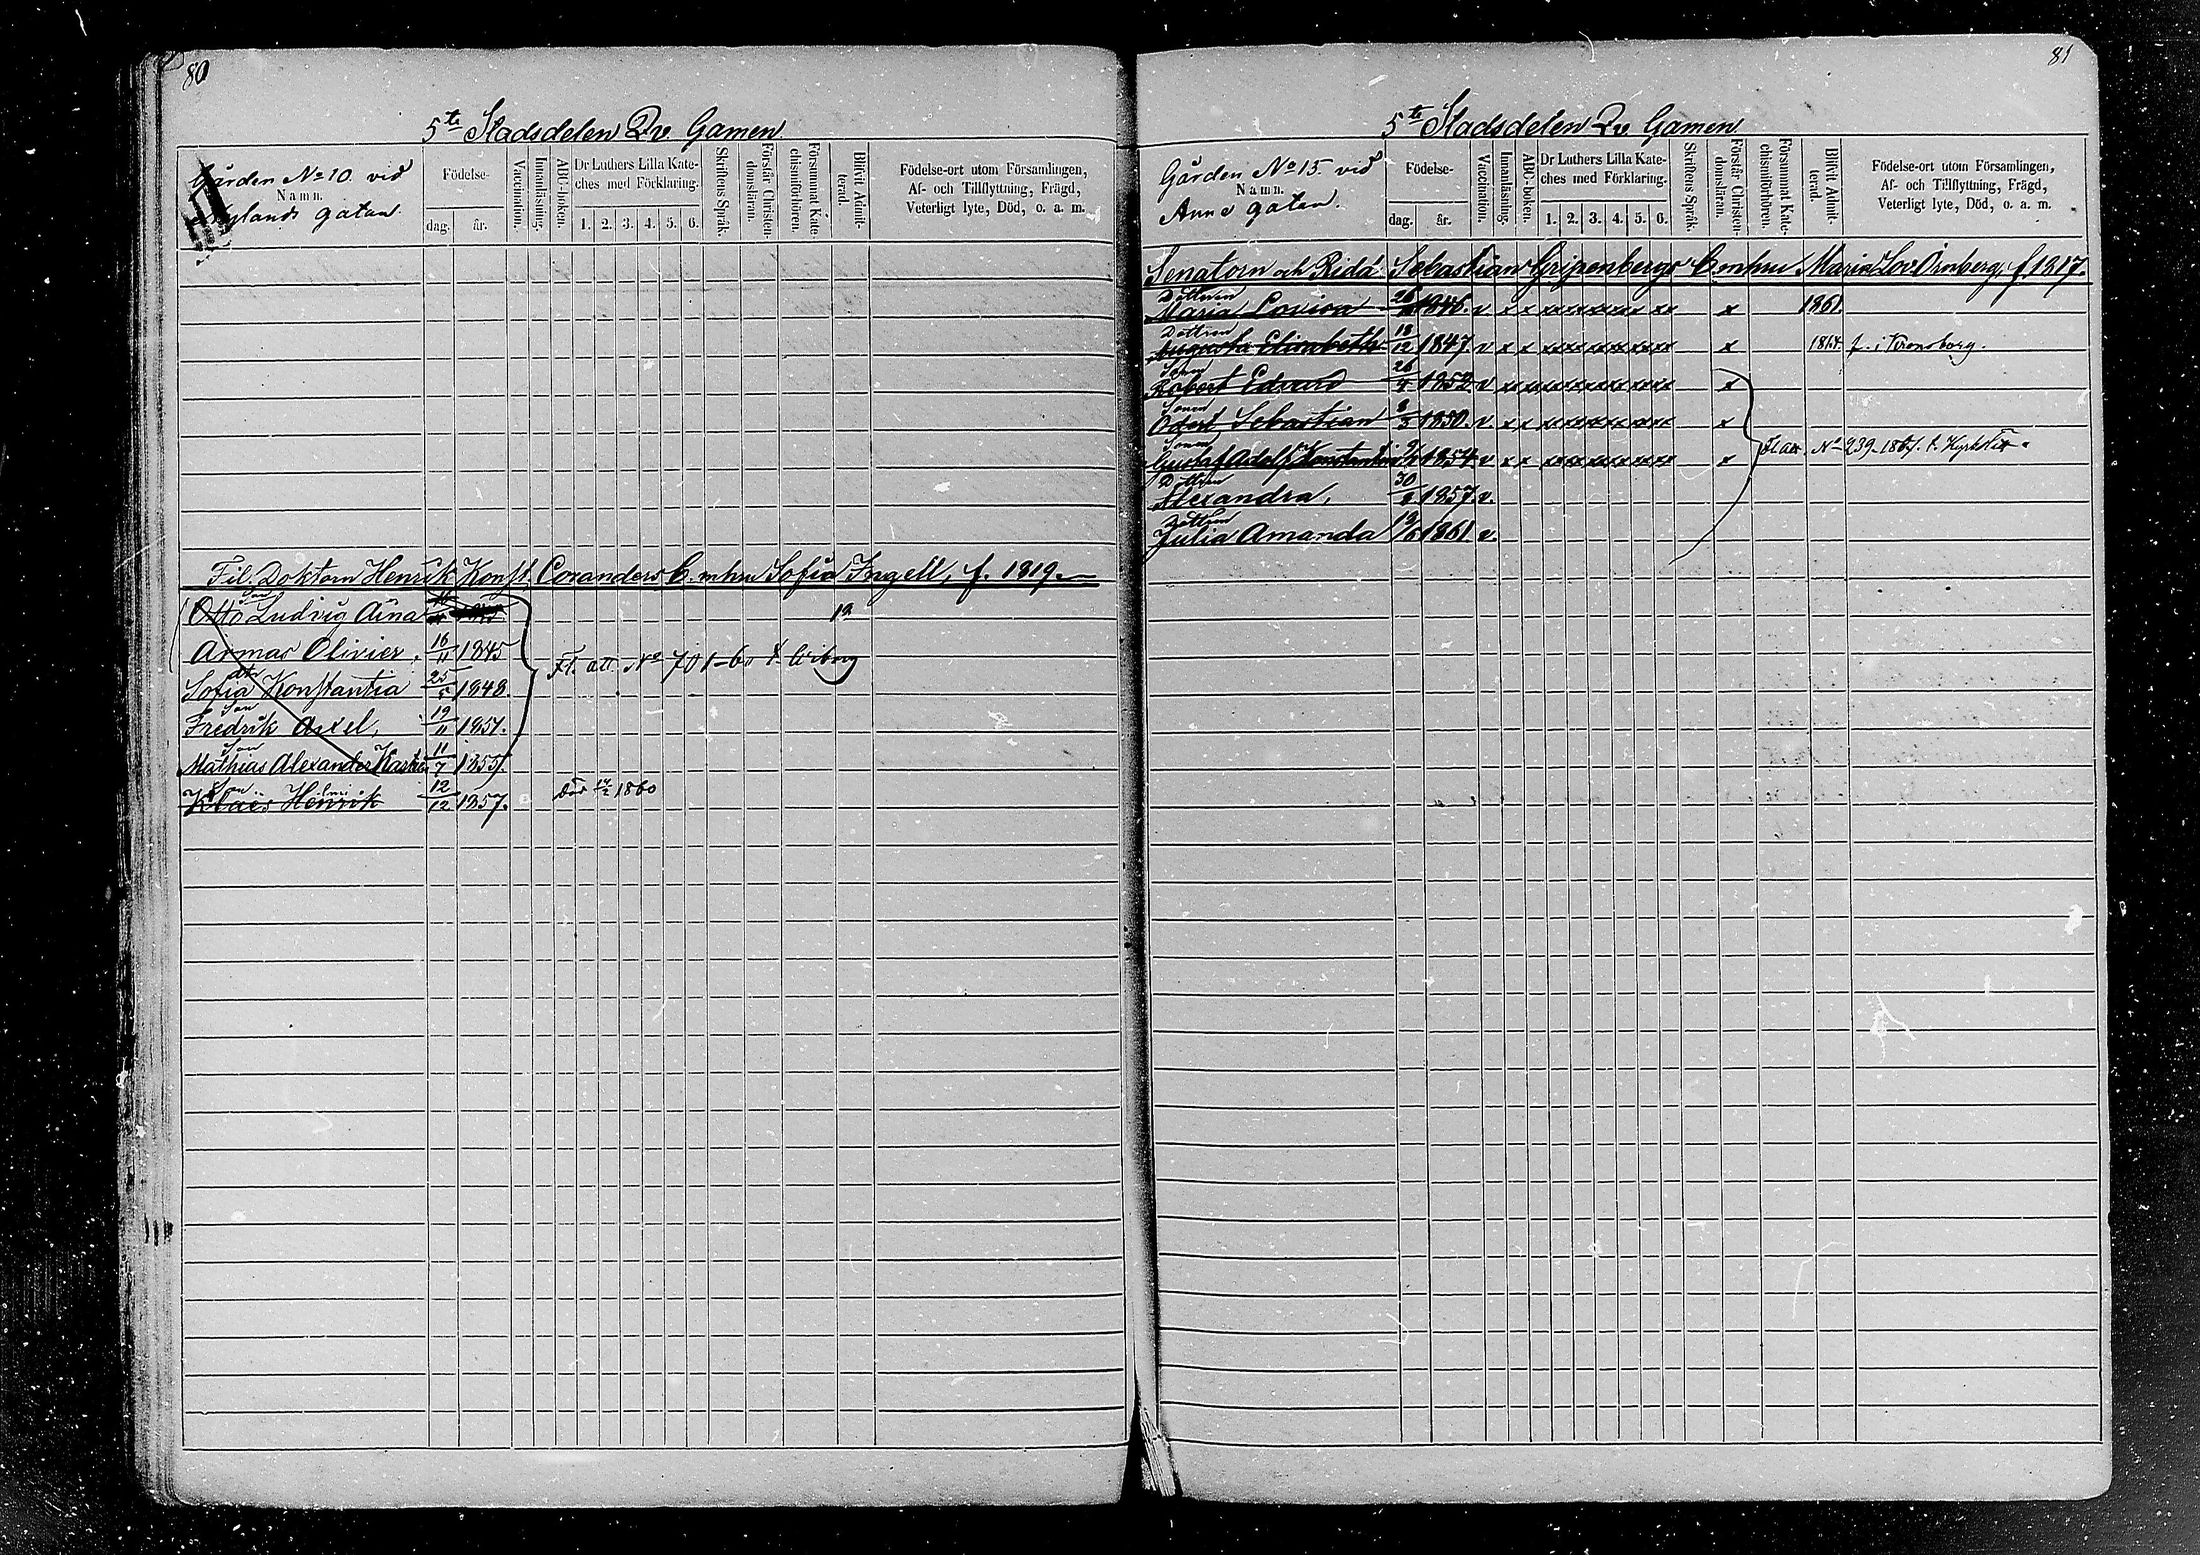 80
5te Stadsdelen Qv. Gamen
Gården No 10. vid
Namn.
Nylands gatan.
Födelse-
dag. år.
Vaccination.
Innanläsning.
ABC-boken.
Dr Luthers Lilla Kate-
ches med Förklaring.
1. 2. 3. 4. 5. 6.
Skriftens Språk.
Förstår Christen-
domsläran.
Försummat Kate-
chismiförhören.
Blifvit Admit-
terad.
Födelse-ort utom Församlingen,
Af- och Tillflyttning, Frägd,
Veterligt lyte, Död, o. a. m.
Fil. Doktorn Henrik Konst. Coranders C. mhu Sofia Ingell, f. 1819.
son
Otto Ludvig Aina
Armas Olivier, 16/11 1845
dtr
Sofia Konstantia 25/5 1848.
Fl. att. No 701-60 t. Wiborg
son
Fredrik Axel, 19/11 1851.
son
Mathias Alexander 11/7 1855.
son
Klaes Henrik 12/12 1857. död 1860
81
5te Stadsdelen Qv. Gamen
Gården No 15. vid
Namn.
Anne gatan.
Födelse-
dag. år.
Vaccination.
Innanläsning.
ABC-boken.
Dr Luthers Lilla Kate-
ches med Förklaring.
1. 2. 3. 4. 5. 6.
Skriftens Språk.
Förstår Christen-
domsläran.
Försummat Kate-
chismiförhören.
Blifvit Admit-
terad.
Födelse-ort utom Församlingen,
Af- och Tillflyttning, Frägd,
Veterligt lyte, Död, o. a. m.
Senatorn och Ridd. Sebastian Gripenbergs C. mhu Maria Lov. Örnberg, f. 1817.
Dottren
Maria Lovisa 1846. v x x x x x x x x x x 1861.
Dottren
Augusta Elisabeth 18/12 1847. v x x x x x x x x x x 1864. f. i Kronoborg.
Sonen
Robert Edvard 1852 v x x x x x x x x x x
Sonen
Odert Sebastian 8/3 1850. v x x x x x x x x x x
Sonen
Gustaf Adolf Konstantin 1854. v x x x x x x x x x x
Fl. att. No 239-
Dottren
Alexandra, 1857. v.
Dottren
Julia Amanda 1861 v.